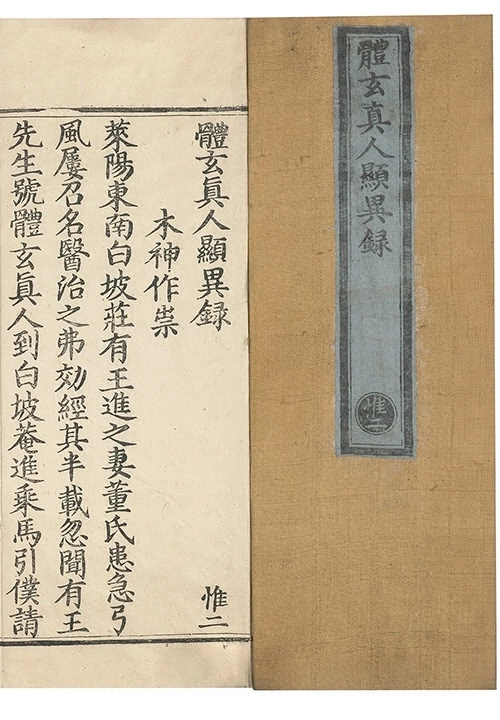 體玄真人顯異録
惟二
體玄眞人顯異録 惟二
木神作祟
萊陽東南白坡莊有王進之妻董氏患急弓
風屢召名醫治之弗効經其半載忽聞有王
先生號體玄眞人到白坡菴進乘馬引僕請